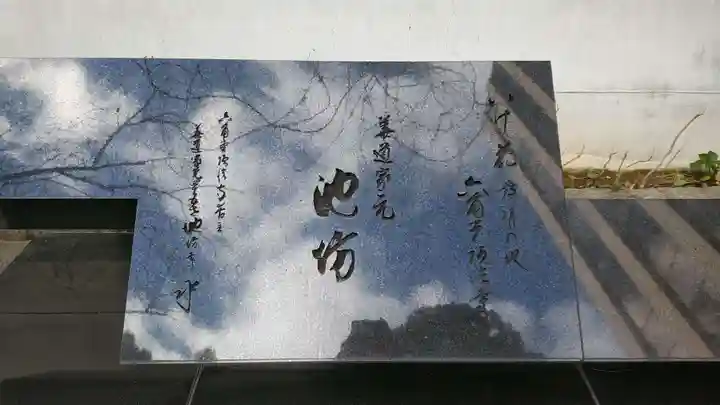 いけ花 発祥の地
六角堂頂法寺
華道家元
池坊
六角堂頂法寺
華道家元
池坊専永